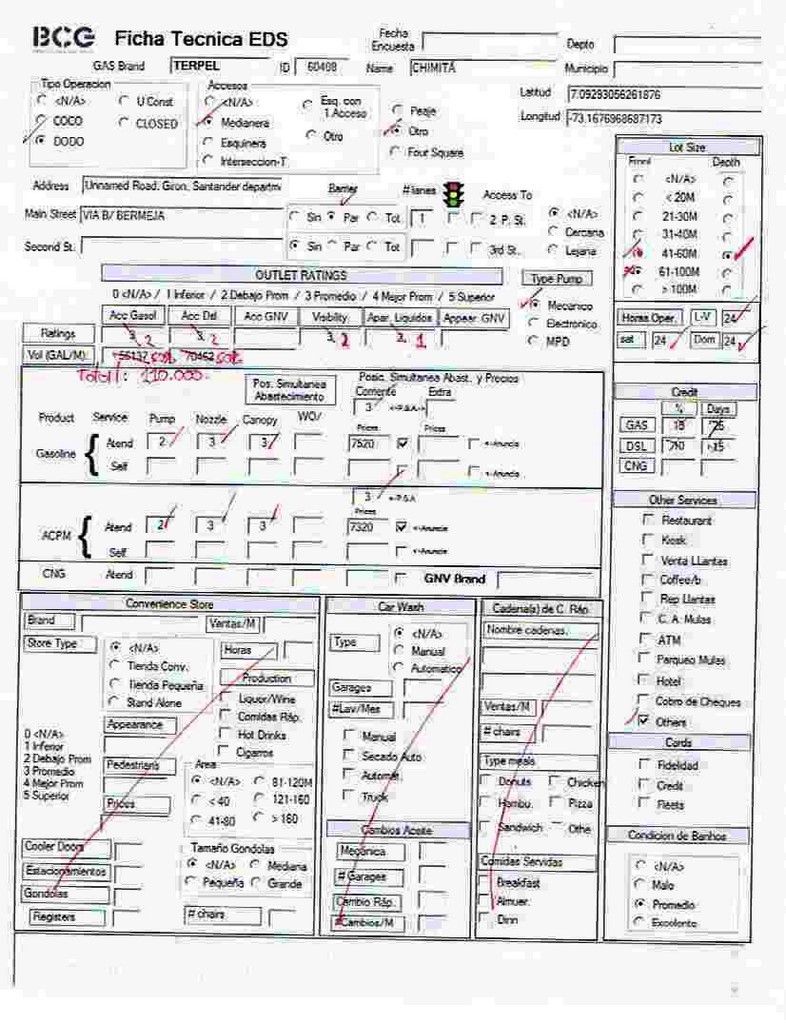 BCG Ficha Tecnica EDS
Fecha Encuesta
Depto
GAS Brand TERPEL ID 60408 Name CHIMITÁ Municipio
Tipo Operacion
<N/A> U Const
COCO CLOSED
DODO
Accesos
<N/A> Esq. con 1 Acceso Peaje
Medianera Otro Otro
Esquinera Four Square
Interseccion-T
Latitud 7.09293056261876
Longitud -73.1676968687173
Lot Size
Front Depth
<N/A>
< 20M
21-30M
31-40M
41-60M
61-100M
> 100M
Address Unnamed Road, Giron, Santander departm
Barrier # lanes Access To
Main Street VIA B/ BERMEJA Sin Par Tot 1 2 P. St. <N/A>
Cercana
Second St. Sin Par Tot 3rd St. Lejana
OUTLET RATINGS
0 <N/A> / 1 Inferior / 2 Debajo Prom / 3 Promedio / 4 Mejor Prom / 5 Superior
Acc Gasol Acc Dsl Acc GNV Visibility Apar. Liquidos Appear GNV
Ratings 3, 2 3, 2 3, 2 3, 1
Vol (GAL/M)
Total: 110.000
Type Pump
Mecanico
Electronico
MPD
Horas Oper. L-V 24
sat 24 Dom 24
Pos. Simultanea Abastecimiento
Posic. Simultanea Abast. y Precios
Corriente Extra
3 <-P.S.A->
Product Service Pump Nozzle Canopy WO/ Prices Prices
Gasoline Atend 2 3 3 7520 <-Anuncia
Self <-Anuncia
3 <-P.S.A
Prices
ACPM Atend 2 3 3 7320 <-Anuncia
Self <-Anuncia
CNG Atend GNV Brand
Credit
% Days
GAS
DSL
CNG
Other Services
Restaurant
Kiosk
Venta LLantas
Coffee/b
Rep Llantas
C. A. Mulas
ATM
Parqueo Mulas
Hotel
Cobro de Cheques
Others
Cards
Fidelidad
Credit
Fleets
Condicion de Banhos
<N/A>
Malo
Promedio
Excelente
Convenience Store
Brand Ventas/M
Store Type <N/A> Horas
Tienda Conv. Production
Tienda Pequeña Liquor/Wine
Stand Alone Comidas Ráp.
Appearance Hot Drinks
Cigarros
0 <N/A>
1 Inferior
2 Debajo Prom
3 Promedio
4 Mejor Prom
5 Superior
Pedestrians
Prices
Area
<N/A> 81-120M
< 40 121-160
41-80 > 160
Cooler Doors
Estacionamientos
Gondolas
Registers
Tamaño Gondolas
<N/A> Mediana
Pequeña Grande
# chairs
Car Wash
Type <N/A>
Manual
Automatico
Garages
#Lav/Mes
Manual
Secado Auto
Automát.
Truck
Cambios Aceite
Mecánica
# Garages
Cambio Ráp.
#Cambios/M
Cadena(s) de C. Ráp.
Nombre cadenas.
Ventas/M
# chairs
Type meals
Donuts Chicken
Hambu. Pizza
Sandwich Othe
Comidas Servidas
Breakfast
Almuer.
Dinn